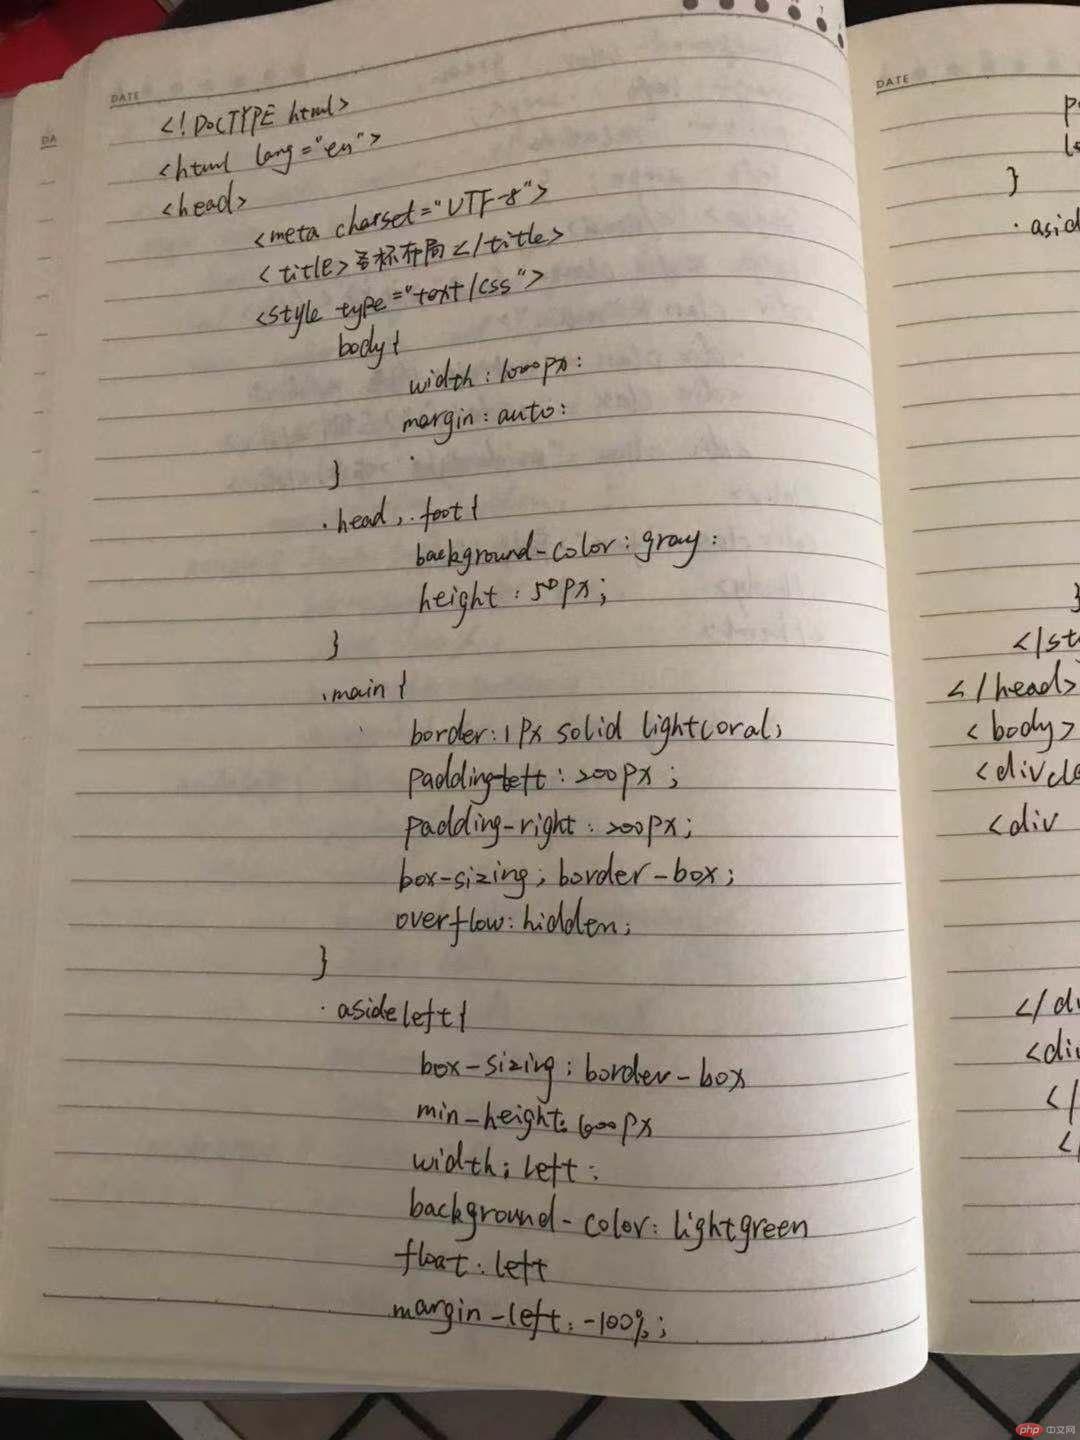 DATE
<!DOCTYPE html>
<html lang="en">
<head>
<meta charset="UTF-8">
<title>圣杯布局</title>
<style type="text/css">
body{
width:1000px:
margin:auto:
}
.head,.foot{
background-color:gray:
height:50px;
}
.main{
border:1px solid lightcoral;
padding-left:200px;
padding-right:200px;
box-sizing;border-box;
overflow:hidden;
}
.asideleft{
box-sizing;border-box
min-height:600px
width;left:
background-color:lightgreen
float:left
margin-left:-100%;
DA
DATE
}
.asid
}
</st
</head>
<body>
<div cla
<div
</di
<div
</
</
php 中文网